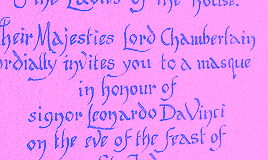 the Ladies of the House.
heir Majesties Lord Chamberlain
ordially invites you to a masque
in honour of
signor Leonardo DaVinci
on the eve of the feast of